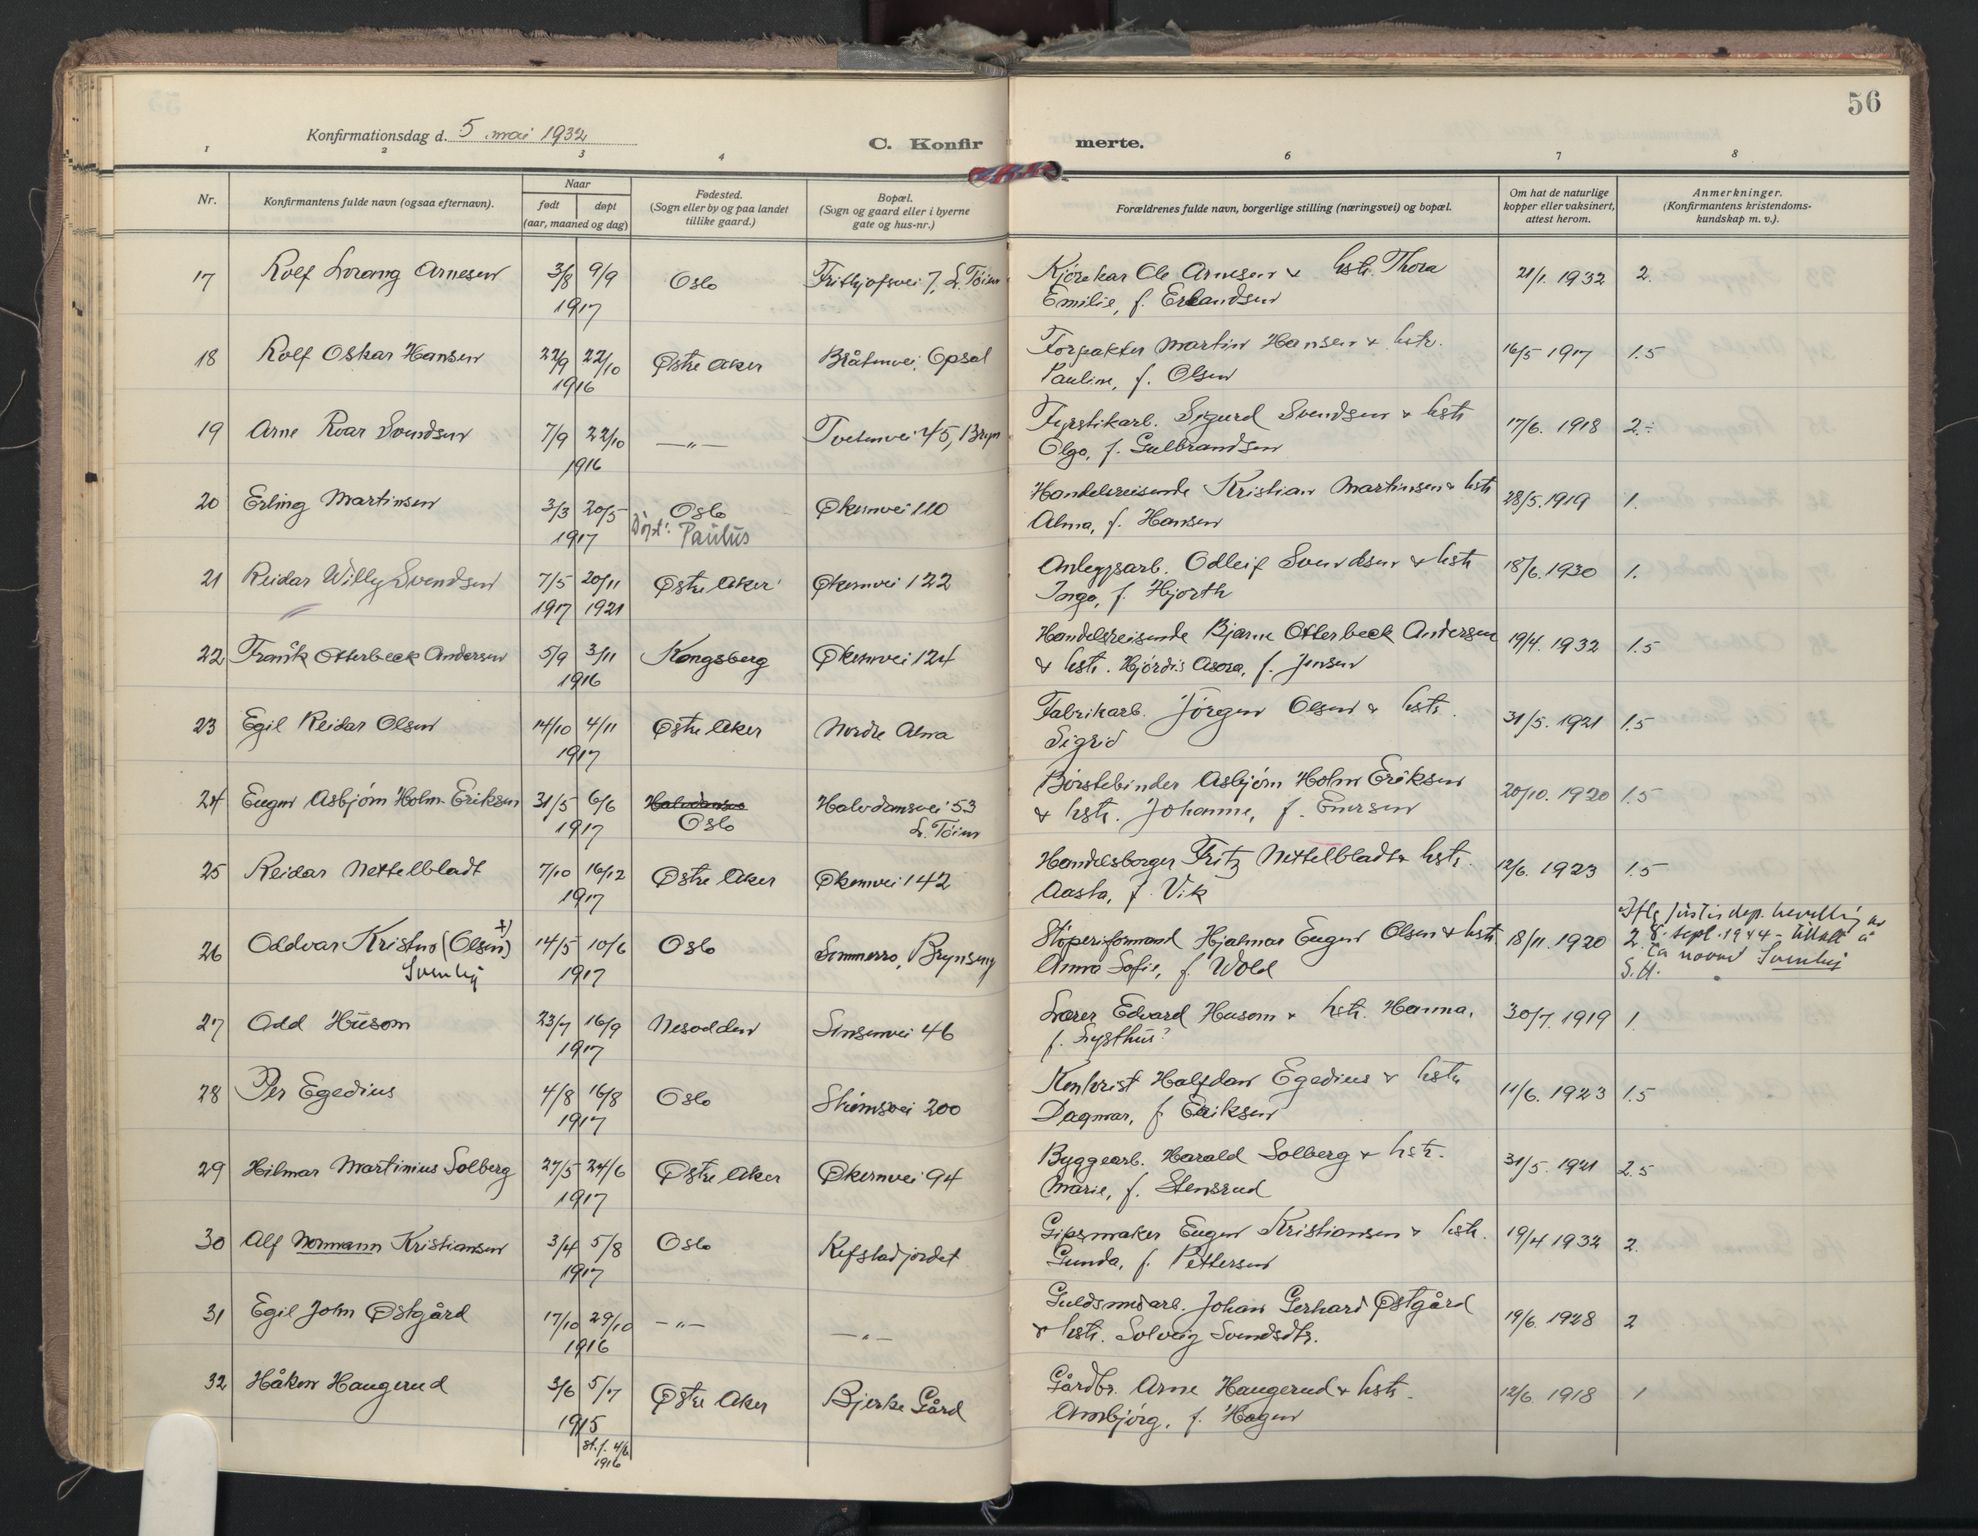 56
Konfirmationsdag d. 5 mai 1932
C. Konfir merte.
1 2 3 4 6 7 8
Nr. Konfirmantens fulde navn (ogsaa efternavn). Naar født døpt (aar, maaned og dag) Fødested. (Sogn eller by og paa landet tillike gaard.) Bopæl. (Sogn og gaard eller i byerne gate og hus-nr.) Forældrenes fulde navn, borgerlige stilling (næringsvei) og bopæl. Om hat de naturlige kopper eller vaksinert, attest herom. Anmerkninger. (Konfirmantens kristendomskundskap m. v.).
17 Rolf Lorang Arnesen 3/8 9/9 Oslo Fritjofsvei 7, L. Töien Kjörekar Ole Arnesen & hstr. Thora 21/1. 1932 2.
1917 Emilie, f. Erlandsen
18 Rolf Oskar Hansen 22/9 22/10 Østre Aker Bråtenvei, Opsal Forpakter Martin Hansen & hstr. 16/5 1917 1.5
1916 Pauline, f. Olsen
19 Arne Roar Svendsen 7/9 22/10 —"— Tvetenvei 45, Bryn Fyrstikarb. Sigurd Svendsen & hstr 17/6. 1918 2.÷
1916 Olga, f. Gulbrandsen
20 Erling Martinsen 3/3 20/5 Oslo Økernvei 110 Handelsreisende Kristian Martinsen & hstr 28/5. 1919 1.
1917 Döpt: Paulus Alma, f. Hansen
21 Reidar Willy Svendsen 7/5 20/11 Østre Aker Økernvei 122 Anleggsarb. Odleif Svendsen & hstr 18/6. 1930 1.
1917 1921 Inga, f. Hjorth
22 Frank Otterbeck Andersen 5/9 3/11 Kongsberg Økernvei 124 Handelsreisende Bjarne Otterbeck Andersen 19/4. 1932 1.5
1916 & hstr. Hjördis Asora, f. Jensen
23 Egil Reidar Olsen 14/10 4/11 Østre Aker Nordre Alna Fabrikarb. Jörgen Olsen & hstr. 31/5. 1921 1.5
1917 Sigrid
24 Eugen Asbjørn Holm-Eriksen 31/5 6/6 Halvdansv Halvdansvei 53 Børstebinder Asbjørn Holm Eriksen 20/10. 1920 1.5
1917 Oslo L. Töien & hstr. Johanne, f. Enersen
25 Reidar Nettelbladt 7/10 16/12 Østre Aker Økernvei 142 Handelsborger Fritz Nettelbladt & hstr. 12/6. 1923 1.5
1917 Aasta, f. Vik
26 Oddvar Kristmo (Olsen) x) 14/5 10/6 Oslo Sommerro, Brynseng Stöperiformand Hjalmar Eugen Olsen & hstr 18/11. 1920 Iflg. justisdep. bevilling av
1917 Anna Sofie, f. Wold 2. 8. sept. 1944 - tillatt å
ta navnet
S.H.
27 Odd Husom 23/7 16/9 Nesodden Sinsenvei 46 Lærer Edvard Husom & hstr. Hanna, 30/7. 1919 1.
1917 f. Lysthus?
28 Per Egedius 4/8 16/8 Oslo Strömsvei 200 Kontrist Halfdan Egedius & hstr 11/6. 1923 1.5
1917 Dagmar, f. Eriksen
29 Hilmar Martinius Solberg 27/5 24/6 Østre Aker Økernvei 94 Byggearb. Harald Solberg & hstr. 31/5. 1921 2.5
1917 Marie, f. Stensrud
30 Alf Normann Kristiansen 3/4 5/8 Oslo Refstadjordet Gipsmaker Eugen Kristiansen & hstr. 19/4 1932 2.
1917 Gunda, f. Pettersen
31 Egil John Østgård 17/10 29/10 —"— —"— Guldsmedarb. Johan Gerhard Østgård 19/6. 1928 2
1916 & hstr. Solveig Svendsdtr.
32 Håkon Haugerud 3/6 5/7 Østre Aker Bjerke Gård Gårdbr. Arne Haugerud & hstr. 12/6. 1918 1
1915 Annbjörg, f. Hagen
st. f. 4/6
1916